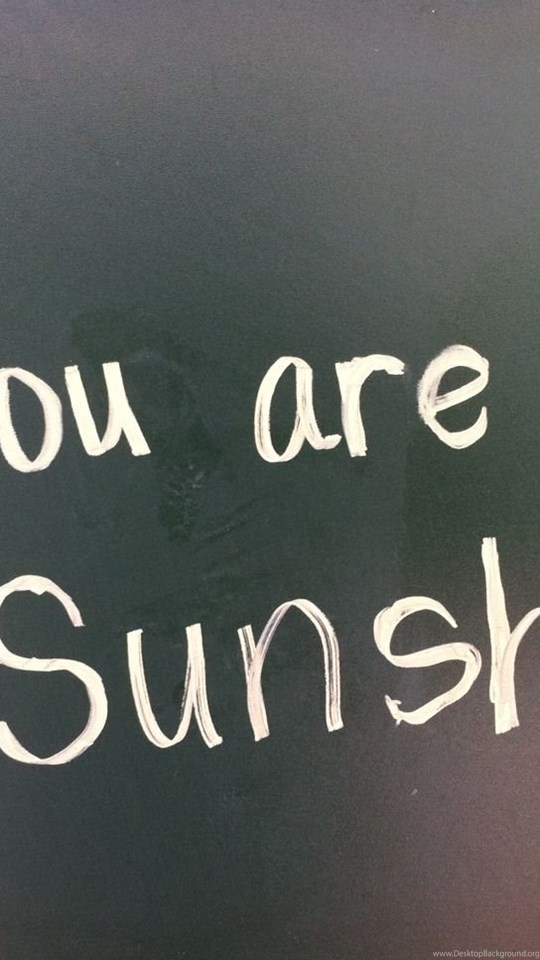 ou are
Sunsh
www.DesktopBackground.org